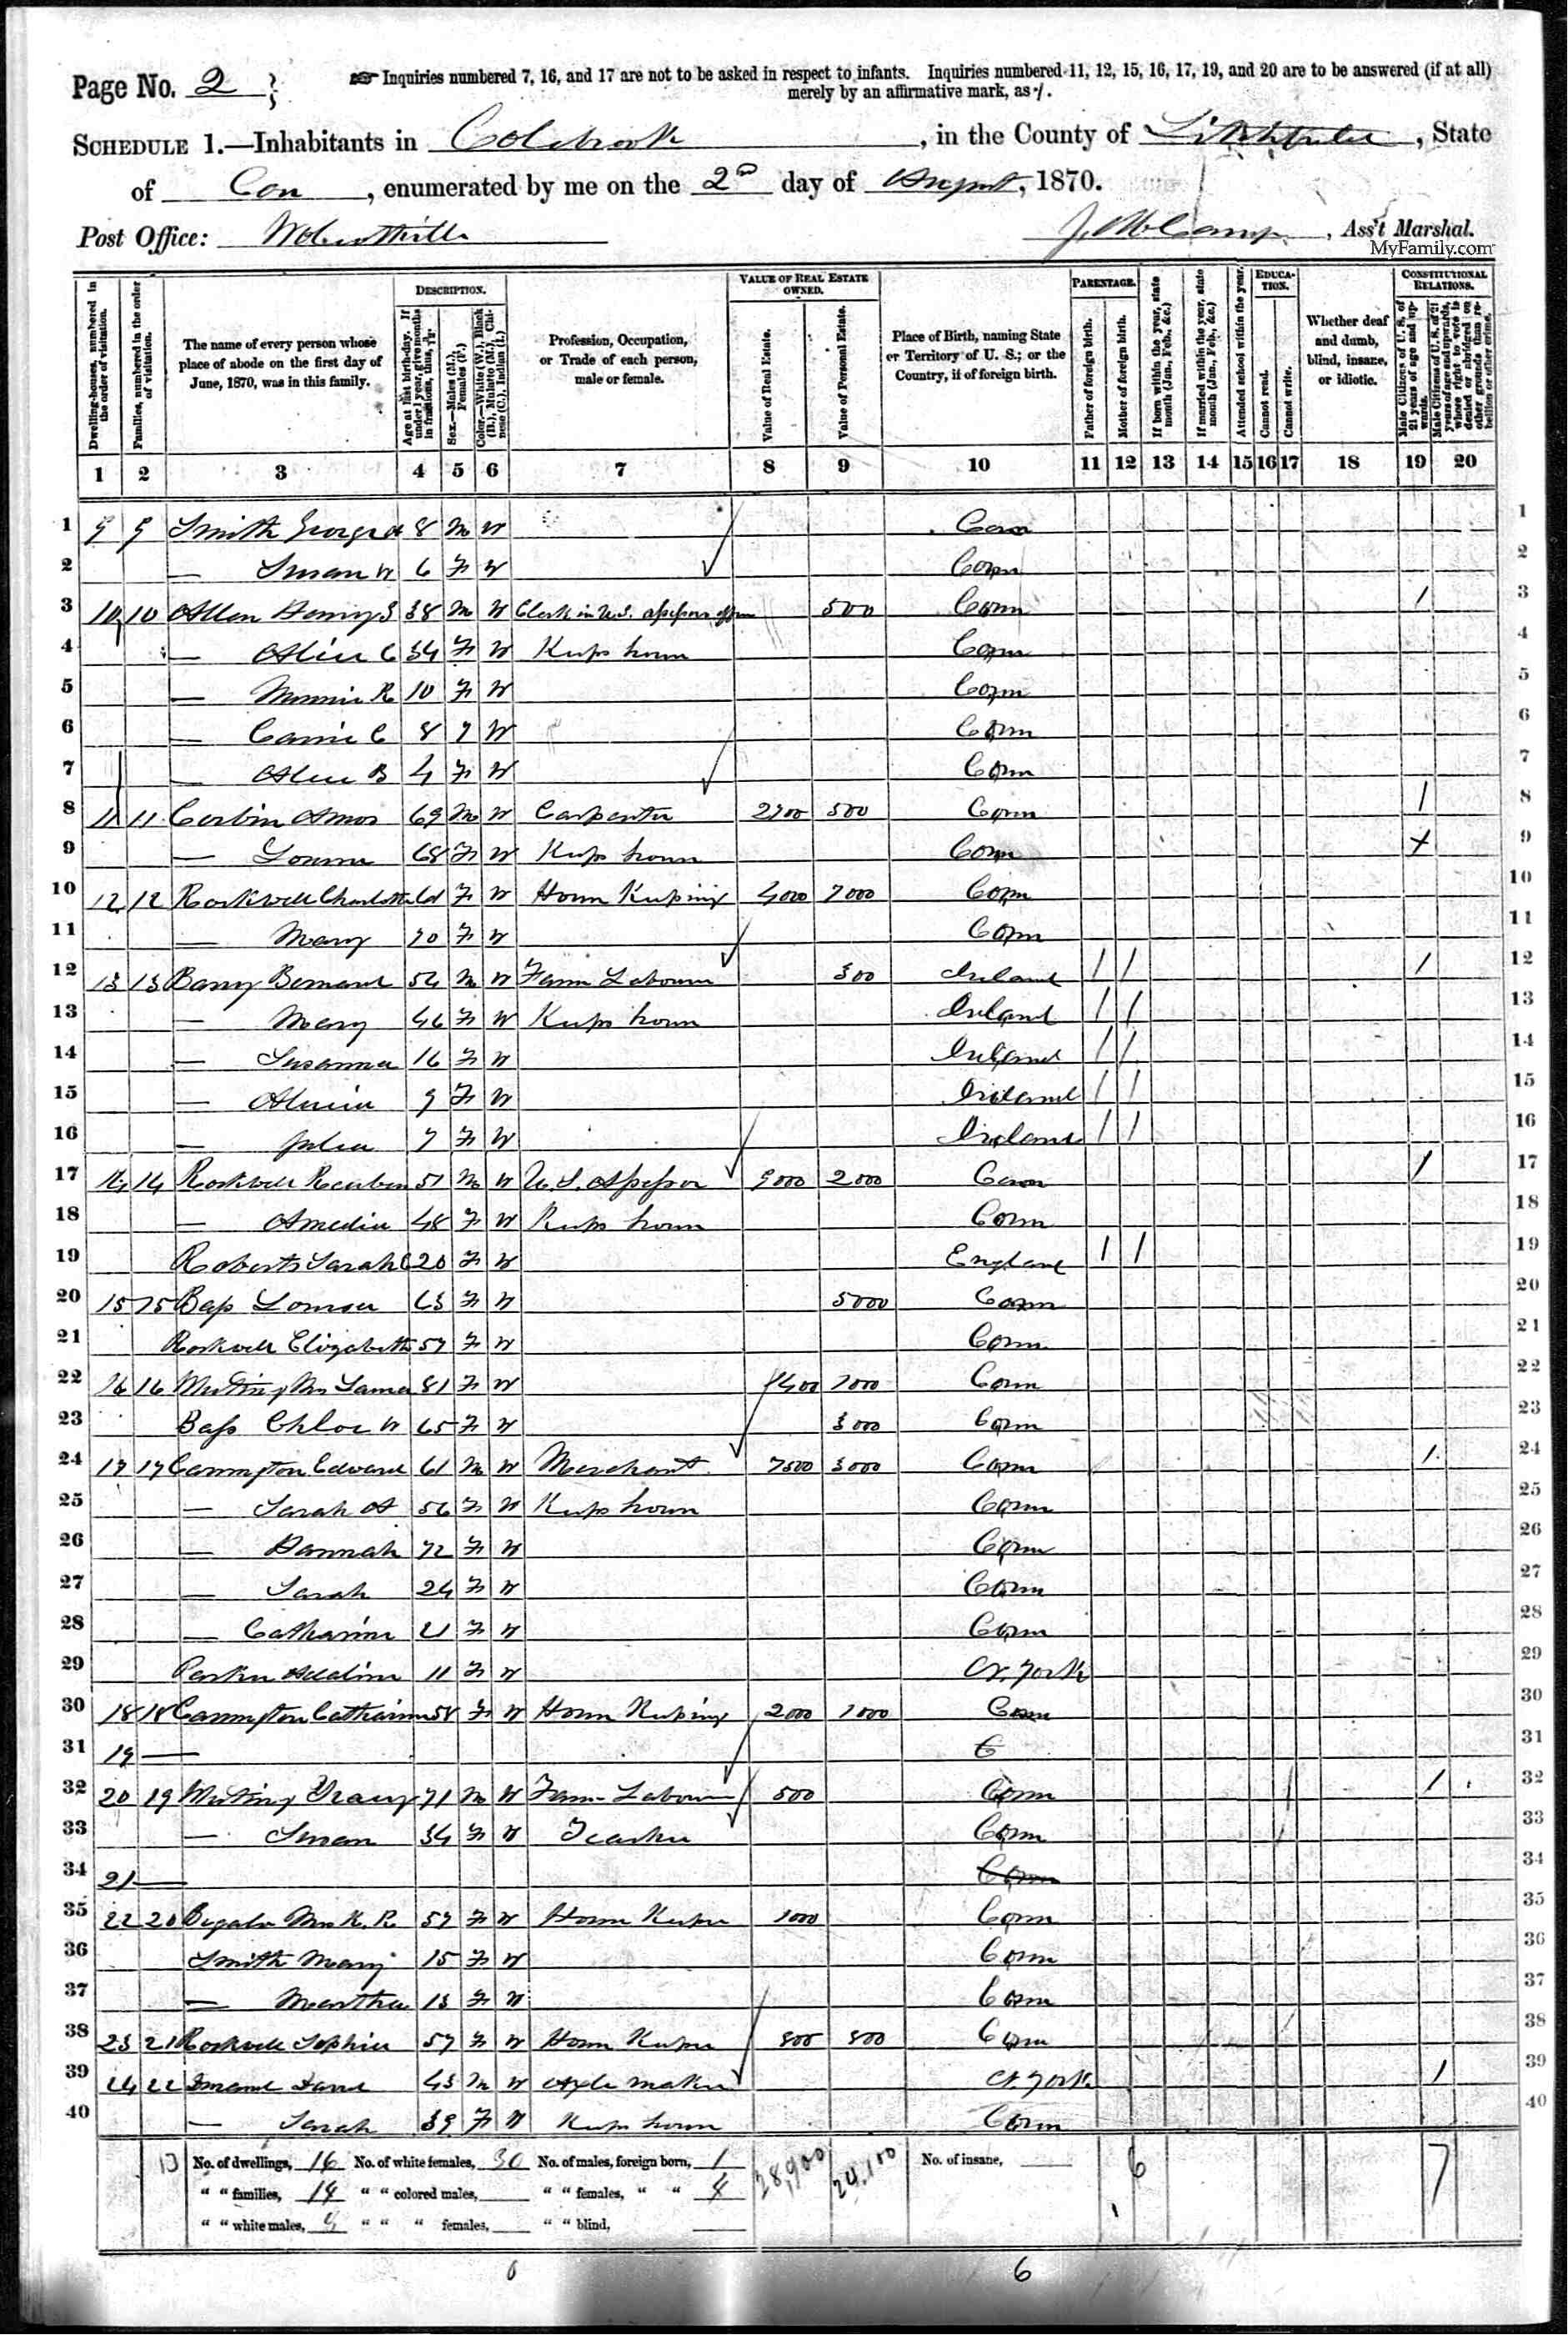 Page No. 2
Inquiries numbered 7, 16, and 17 are not to be asked in respect to infants. Inquiries numbered 11, 12, 15, 16, 17, 19, and 20 are to be answered (if at all)
merely by an affirmative mark, as /.
SCHEDULE 1.—Inhabitants in Colebrook, in the County of Litchfield, State
of Con, enumerated by me on the 2nd day of August, 1870.
Post Office: , Ass't Marshal.
MyFamily.com
Dwelling-houses, numbered in the order of visitation.
Families, numbered in the order of visitation.
The name of every person whose place of abode on the first day of June, 1870, was in this family.
DESCRIPTION.
Age at last birth-day. If under 1 year, give months in fractions, thus,
Sex.—Males (M.), Females (F.)
Color.—White (W.), Black (B.), Mulatto (M.), Chinese (C.), Indian (I.)
Profession, Occupation, or Trade of each person, male or female.
VALUE OF REAL ESTATE OWNED.
Value of Real Estate.
Value of Personal Estate.
Place of Birth, naming State or Territory of U. S.; or the Country, if of foreign birth.
PARENTAGE.
Father of foreign birth.
Mother of foreign birth.
If born within the year, state month (Jan., Feb., &c.)
If married within the year, state month (Jan., Feb., &c.)
Attended school within the year.
EDUCATION.
Cannot read.
Cannot write.
Whether deaf and dumb, blind, insane, or idiotic.
CONSTITUTIONAL RELATIONS.
Male Citizens of U. S. of 21 years of age and upwards.
Male Citizens of U. S. of 21 years of age and upwards, whose right to vote is denied or abridged on other grounds than rebellion or other crime.
1 2 3 4 5 6 7 8 9 10 11 12 13 14 15 16 17 18 19 20
1 9 9 Smith George 8 M W Conn 1
2 — Susan W 6 F W Conn 2
3 10 10 Allen Henry S 38 M W Clerk in U.S. Assessors office 500 Conn / 3
4 — Alice C 34 F W Keeps house Conn 4
5 — Minnie R 10 F W Conn 5
6 — Carrie C 8 F W Conn 6
7 — Alice B 4 F W Conn 7
8 11 11 Corbin Amos 69 M W Carpenter 500 Conn / 8
9 — Louisa 68 F W Keeps house Conn 9
10 12 12 Rockwell Charlotte F W House Keeping Conn 10
11 — Mary 70 F W Conn 11
12 13 13 Barry Bernard 54 M W Farm Laborer 300 Ireland / / / 12
13 — Mary 46 F W Keeps house Ireland / / 13
14 — Susanna 16 F W Ireland / / 14
15 — 9 F W Ireland / / 15
16 — Julia 7 F W Ireland / / 16
17 14 14 Rockwell Reuben 51 M W U.S. Assessor 9000 2000 Conn / 17
18 — Amelia 48 F W Keeps house Conn 18
19 Roberts Sarah 20 F W England / / 19
20 15 15 Bass Louisa 63 F W 5000 Conn 20
21 Rockwell Elizabeth 57 F W Conn 21
22 16 16 81 F W 1400 Conn 22
23 Bass Chloe W 65 F W 3000 Conn 23
24 17 17 Carrington Edward 61 M W Merchant 7500 3000 Conn / 24
25 — Sarah A 56 F W Keeps house Conn 25
26 — Hannah 72 F W Conn 26
27 — Sarah 24 F W Conn 27
28 — Catharine 21 F W Conn 28
29 Adaline 11 F W N. York 29
30 18 18 Carrington Catharine 58 F W House Keeping 2000 1000 Conn 30
31 19 — 31
32 20 19 71 M W Farm Laborer 500 Conn / 32
33 — Susan 34 F W Teacher Conn 33
34 21 — Conn 34
35 22 20 Mrs K. R. 57 F W House Keeper 1000 Conn 35
36 Smith Mary 15 F W Conn 36
37 — Martha 13 F W Conn 37
38 23 21 Rockwell Sophia 57 F W House Keeper 800 800 Conn 38
39 24 22 43 M W Axle maker N. York / 39
40 — Sarah 39 F W Keeps house Conn 40
13 No. of dwellings, 16 No. of white females, 30 No. of males, foreign born, 1 28,900 24,100 No. of insane, 6 7
" " families, 14 " " colored males, " " females, " " 4
" " white males, " " " females, " " blind,
6